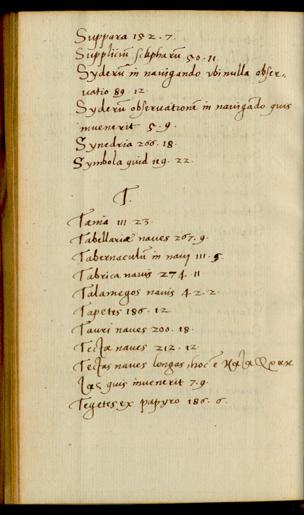 Suppara 152. 7.
Suppliciũ scapharũ 50. 11
Syderũ in navigando vbi nulla obser-
uatio 89. 12
Syderũ obseruationẽ in navigãdo quis
inuenerit 5. 9.
Synedria 266. 18.
Symbola quid 119. 22.
T.
Tænia 111 23.
Tabellariæ naves 267. 9.
Tabernaculũ in navi 111. 5
Tabrica navis 274. 11
Talamegos navis 42. 2.
Tapetes 186. 12
Tauri naves 200. 18.
Tectæ naves 212. 12.
Tectas naves longas hoc e
quis inuenerit 7. 9.
Tegetes ex papyro 186. 6.